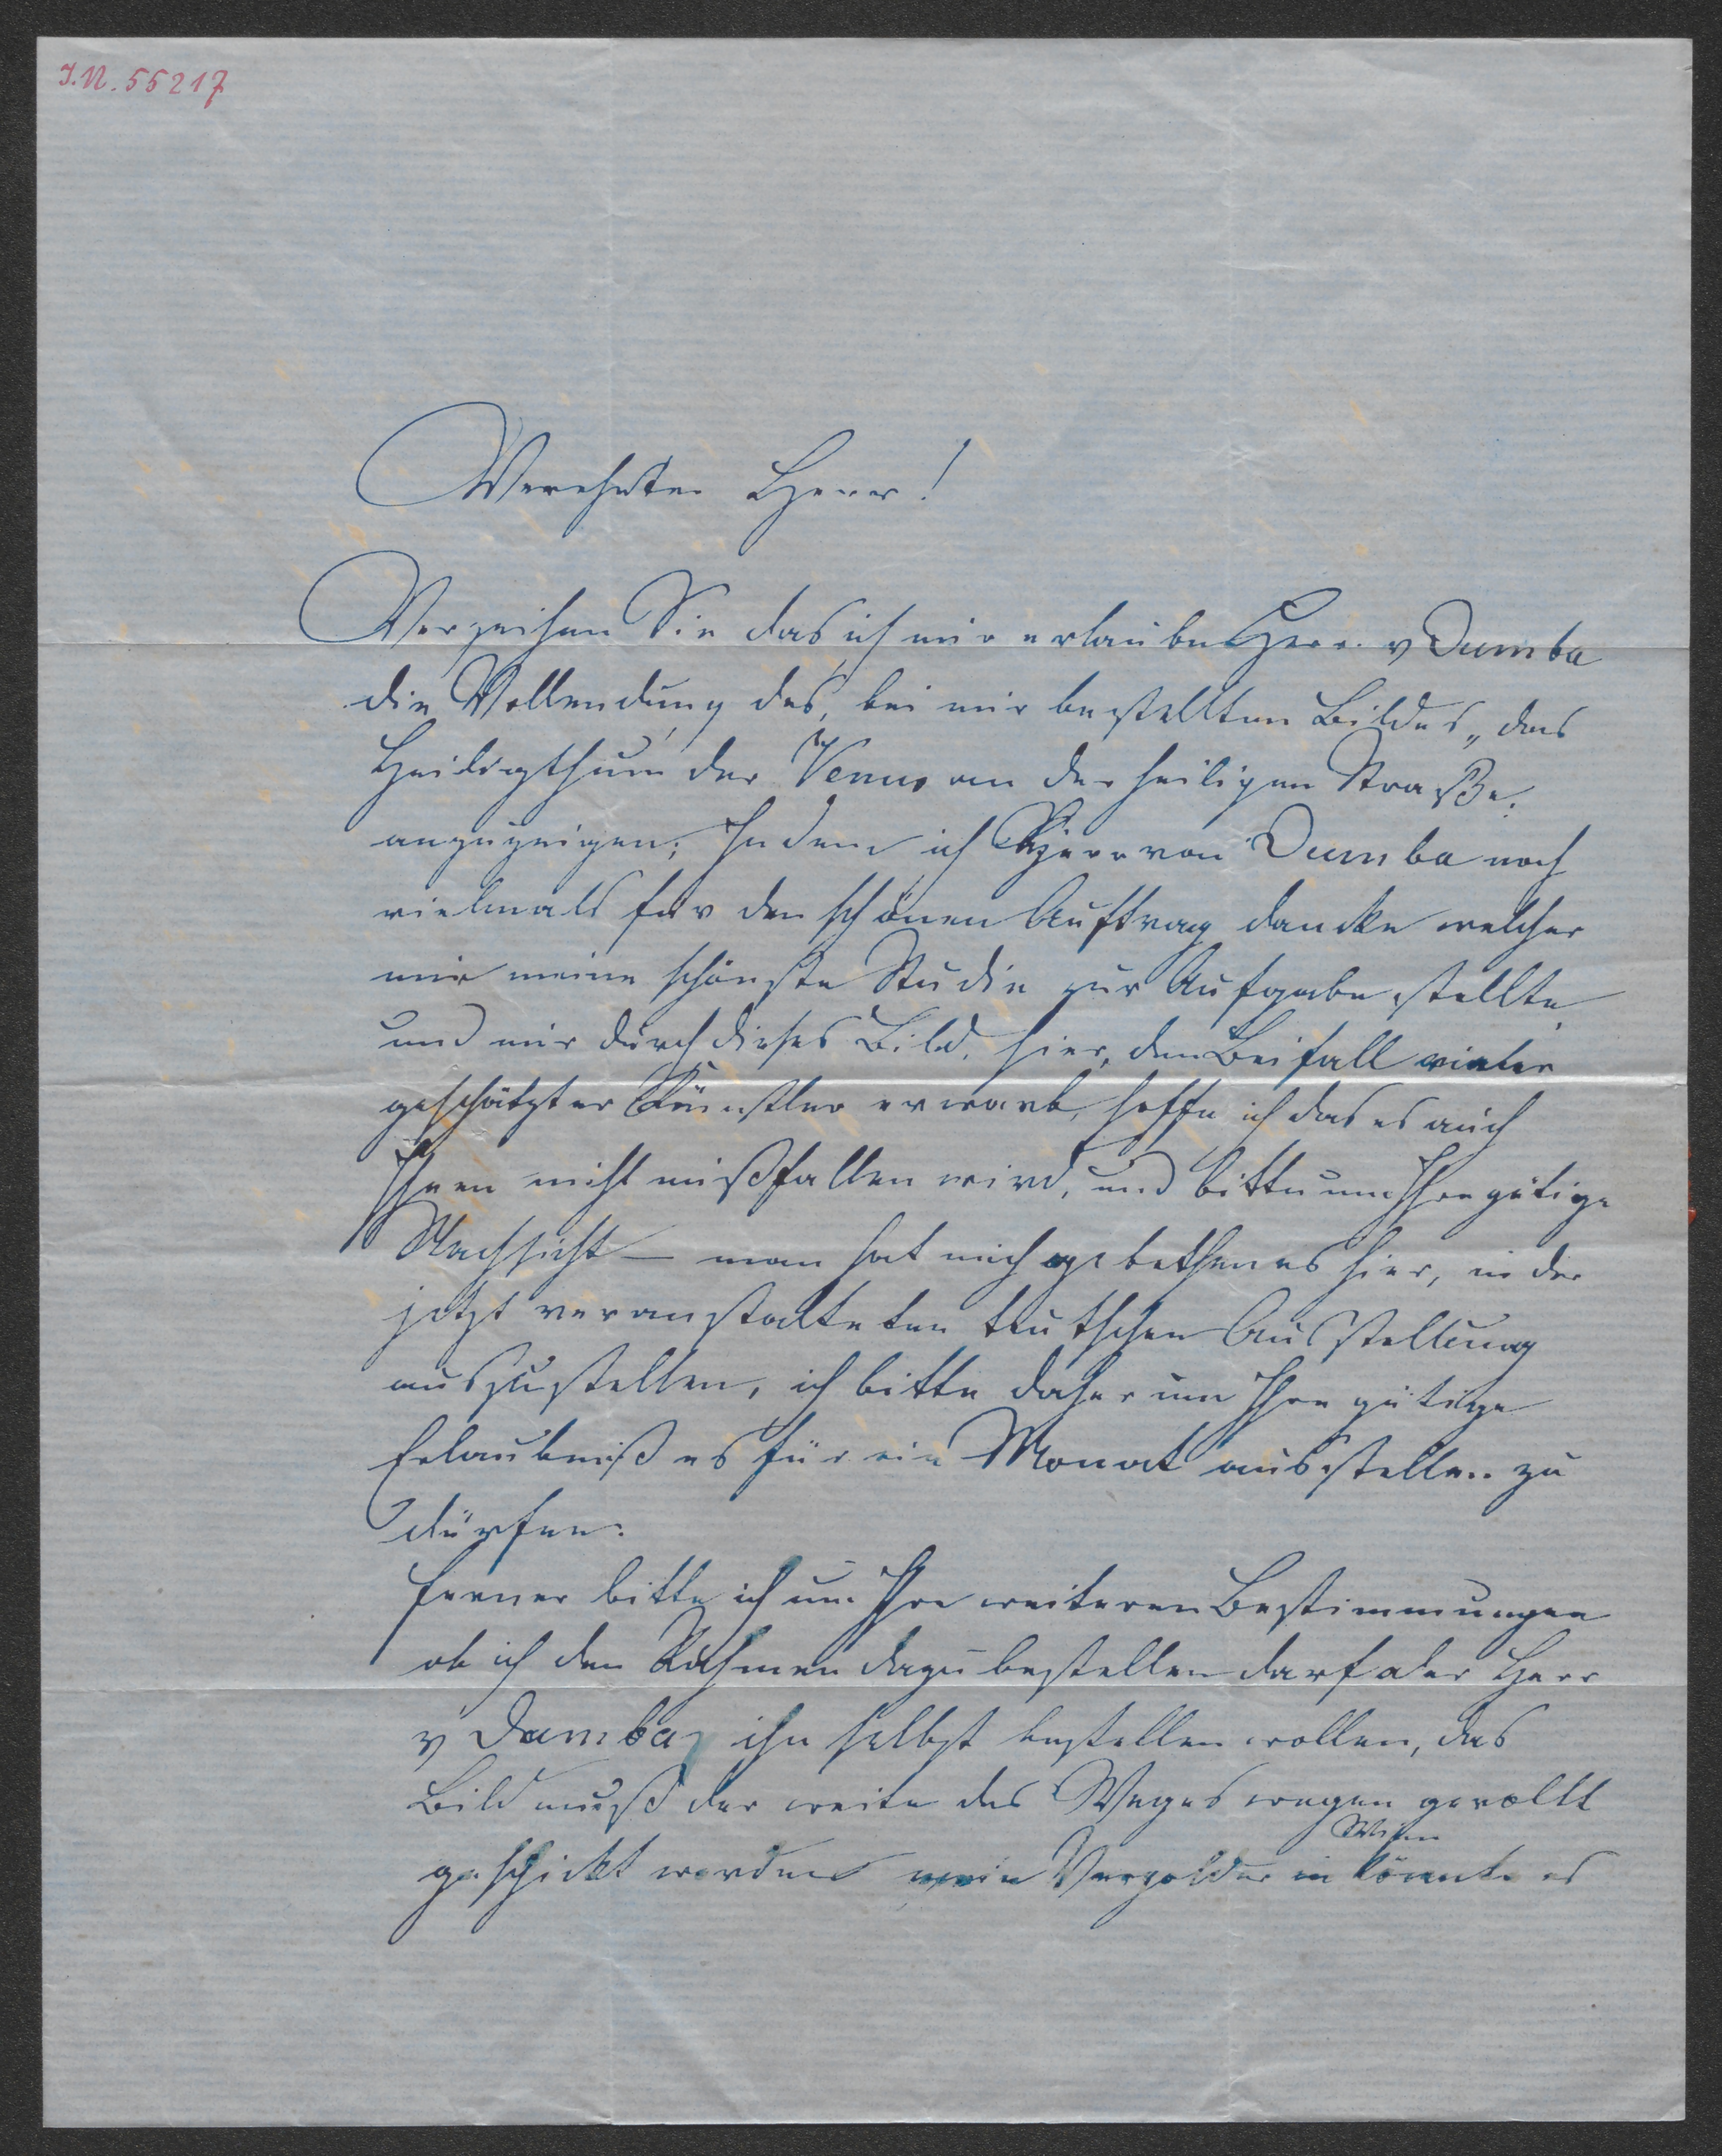 I.N. 55217
Verehrter Herr!
Verzeihen Sie das ich mir erlaube Herr v Dumba
die Vollendung des, bei mir bestellten Bildes „das
Heiligthum der Venus an der heiligen Straße.
anzuzeigen; Indem ich Herr von Dumba noch
vielmals für den schönen Auftrag dancke welcher
mir meine schönste Studie zur Aufgabe stellte
und mir durch dieses Bild, hier, den Beifall vieler
geschätzter Künstler erwarb, hoffe ich das es auch
Ihnen nicht mißfallen wird, und bitte um Ihre gütige
Nachsicht – man hat mich gebethen es hier, in der
jetzt veranstalteten teutschen Ausstellung
auszustellen, ich bitte daher um Ihre gütige
Erlaubniß es für ein Monat ausstellen zu
dürfen.
ferner bitte ich um Ihre weiteren Bestimmungen
ob ich den Rahmen dazu bestellen darf oder Herr
v Dumba ihn selbst bestellen wollen, das
Bild muß der weite des Weges wegen gerollt
Wien
geschickt werden mein Vergolder in könnte es